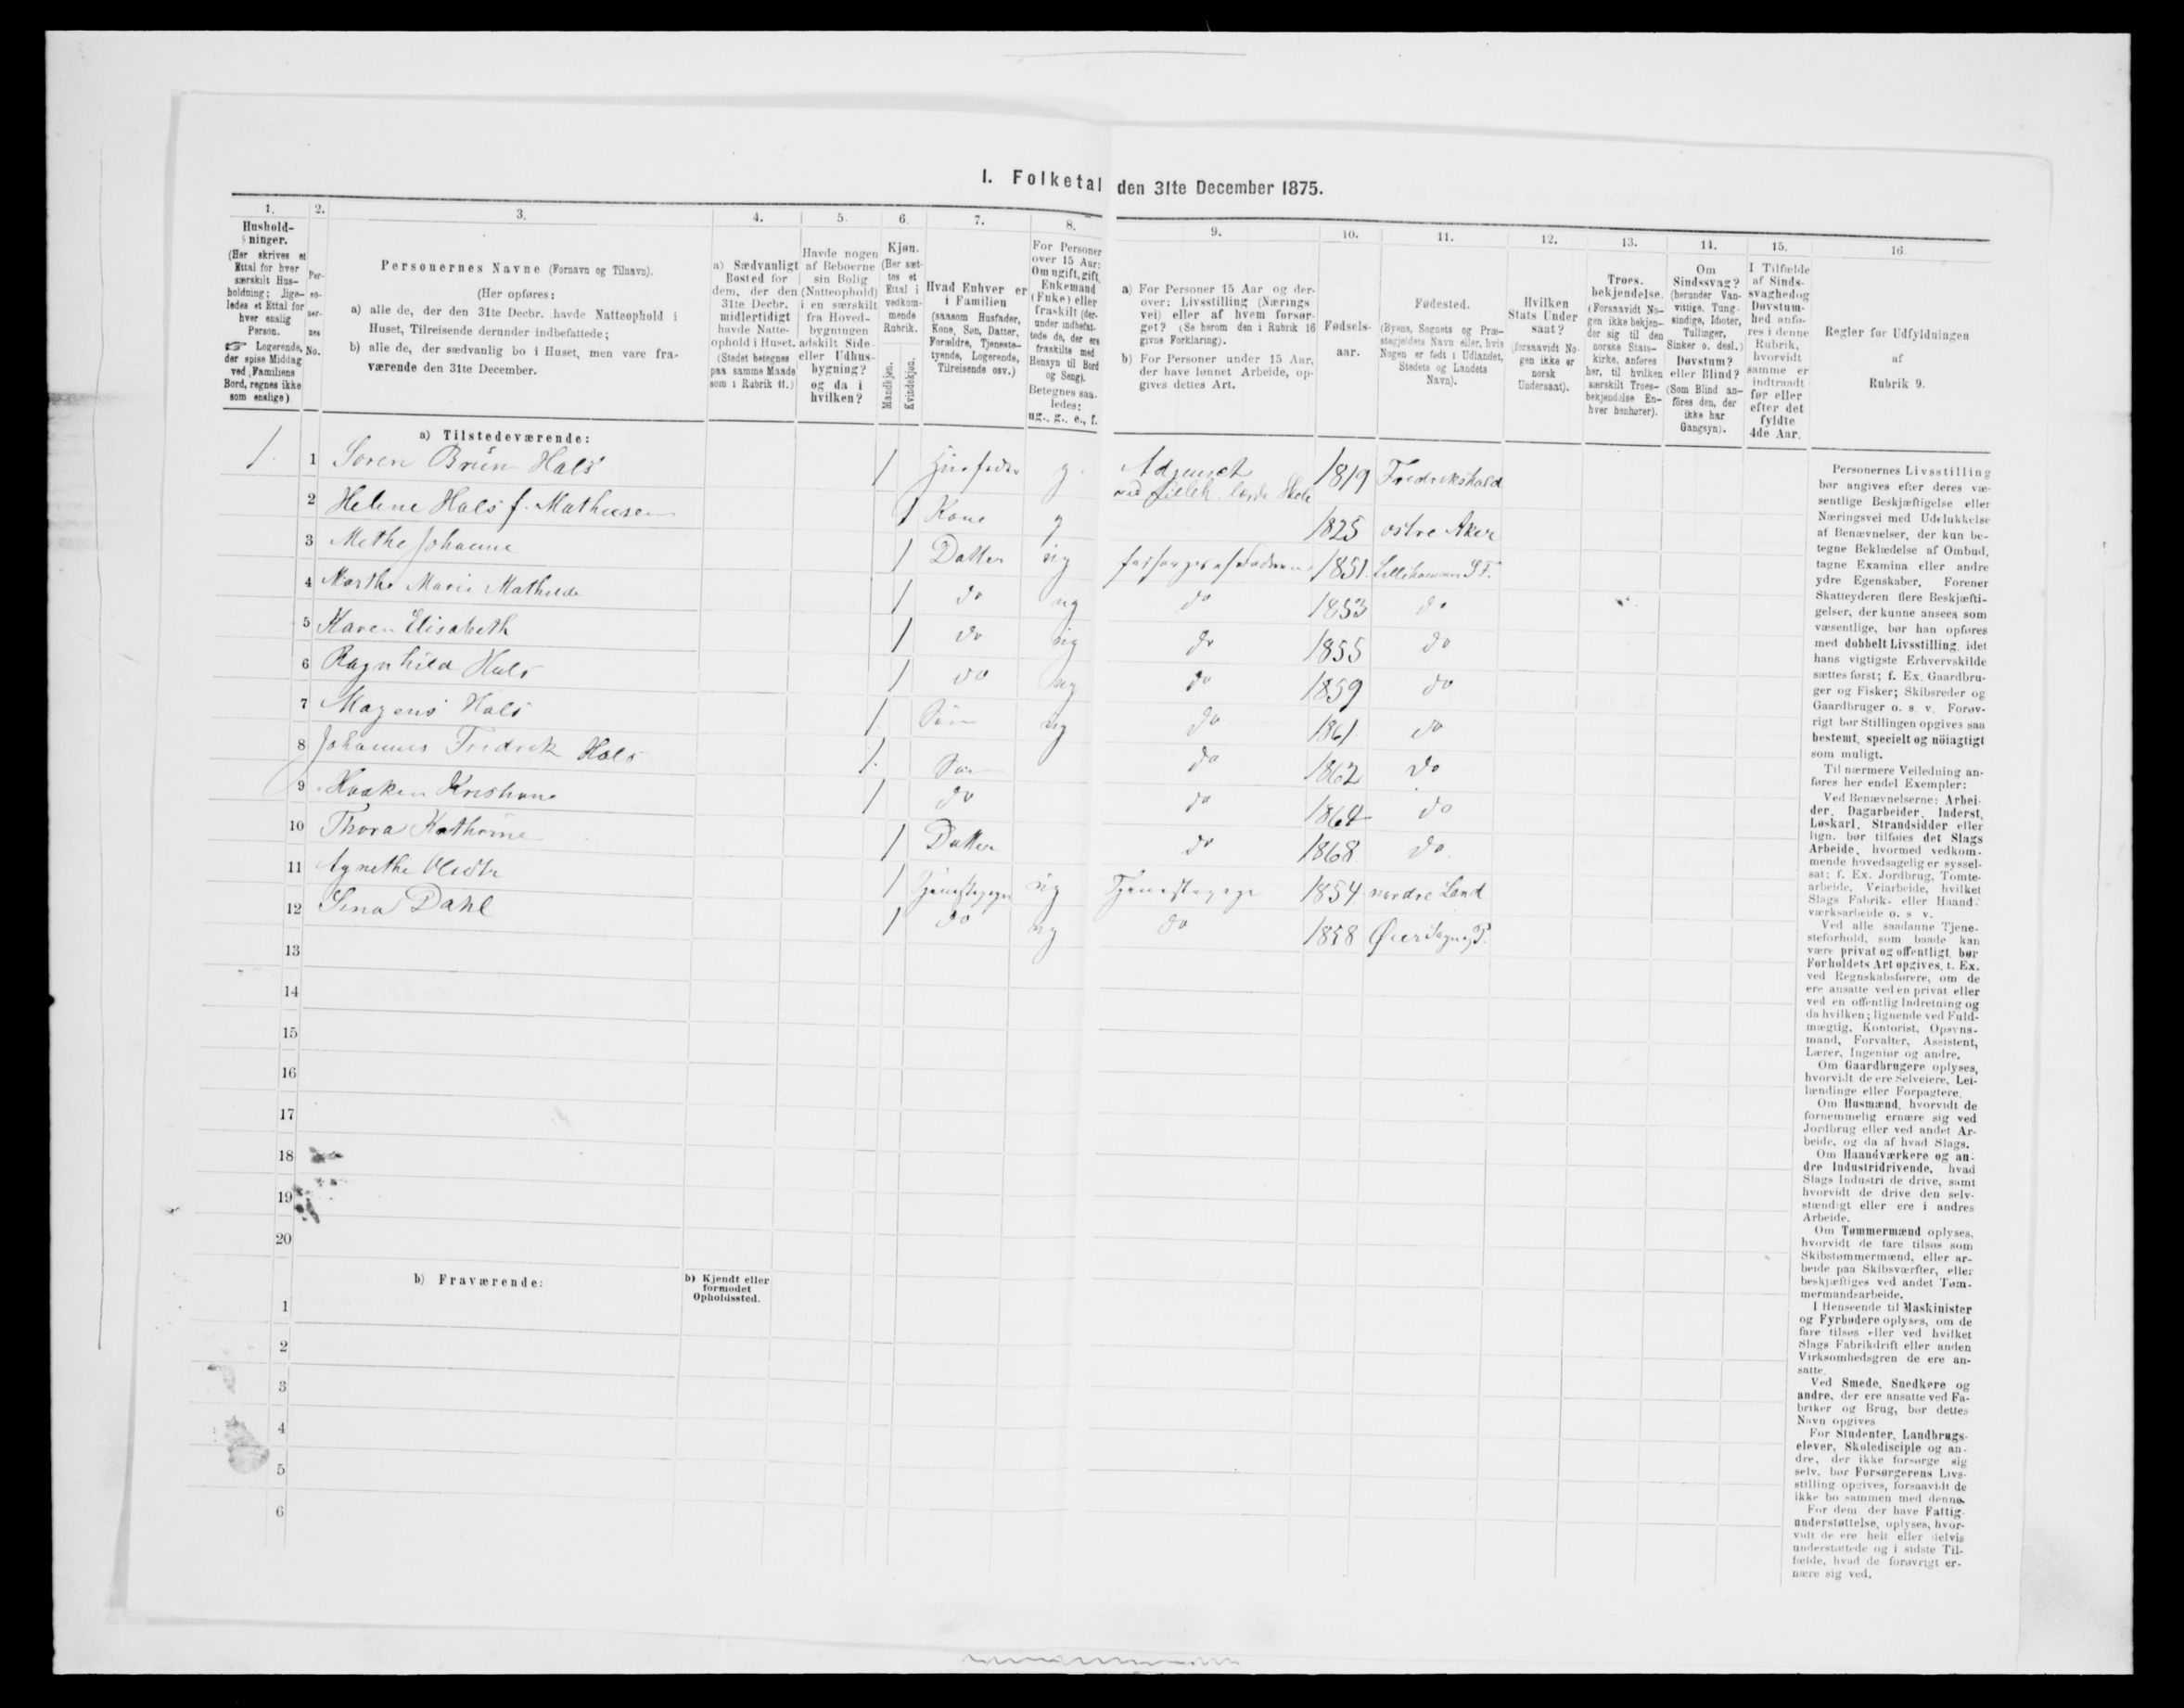 I. Folketal den 31te December 1875.
1. 2. 3. 4. 5. 6. 7. 8. 9. 10. 11. 12. 13. 14. 15. 16.
Hushold-
ninger.
(Her skrives et
Ettal for hver
særskilt Hus-
holdning; lige-
ledes et Ettal for
hver enslig
Person.
☞ Logerende,
der spise Middag
ved Familiens
Bord, regnes ikke
som enslige)
Per-
so-
ner-
nes
No.
Personernes Navne (Fornavn og Tilnavn).
(Her opføres:
a) alle de, der den 31te Decbr. havde Natteophold i
Huset, Tilreisende derunder indbefattede;
b) alle de, der sædvanlig bo i Huset, men vare fra-
værende den 31te December.
a) Sædvanligt
Bosted for
dem, der den
31te Decbr.
midlertidigt
havde Natte-
ophold i Huset.
(Stedet betegnes
paa samme Maade
som i Rubrik 11.)
Havde nogen
af Beboerne
sin Bolig
(Natteophold)
i en særskilt
fra Hoved-
bygningen
adskilt Side-
eller Udhus-
bygning?
og da i
hvilken?
Kjøn.
(Her sæt-
tes et
Ettal i
vedkom-
mende
Rubrik.
Mandkjøn.
Kvindekjøn.
Hvad Enhver er
i Familien
(saasom Husfader,
Kone, Søn, Datter,
Forældre, Tjeneste-
tyende, Logerende,
Tilreisende osv.)
For Personer
over 15 Aar:
Om ugift, gift,
Enkemand
(Enke) eller
fraskilt (der-
under indbefat-
tede de, der ere
fraskilte med
Hensyn til Bord
og Seng).
Betegnes saa-
ledes:
ug., g., e., f.
a) For Personer 15 Aar og der-
over: Livsstilling (Nærings
vei) eller af hvem forsør-
get? (Se herom den i Rubrik 16
givne Forklaring).
b) For Personer under 15 Aar,
der have lønnet Arbeide, op-
gives dettes Art.
Fødsels-
aar.
Fødested.
(Byens, Sognets og Præ-
stegjeldets Navn eller, hvis
Nogen er født i Udlandet,
Stedets og Landets
Navn).
Hvilken
Stats Under
saat?
(forsaavidt No-
gen ikke er
norsk
Undersaat).
Troes-
bekjendelse.
(Forsaavidt No-
gen ikke bekjen-
der sig til den
norske Stats-
kirke, anføres
her, til hvilken
særskilt Troes-
bekjendelse En-
hver henhører).
Om
Sindssvag?
(herunder Van-
vittige, Tung-
sindige, Idioter,
Tullinger,
Sinker o. desl.)
Døvstum?
eller Blind?
(Som Blind an-
føres den, der
ikke har
Gangsyn).
I Tilfælde
af Sinds-
svaghed og
Døvstum-
hed anfø-
res i denne
Rubrik,
hvorvidt
samme er
indtraadt
før eller
efter det
fyldte
4de Aar.
Regler for Udfyldningen
af
Rubrik 9.
a) Tilstedeværende:
1. 1 Soren Brün Hals 1 Husfader g. Adjunct 1819 Fredrikshald
ved Lilleh. lærde Skole
2 Helene Hals f. Mathiesen 1 Kone g 1825 ostre Aker
3 Methe Johanne 1 Datter ug forsørges af Faderen 1851 Lillehammer
4 Marthe Marie Mathilde 1 do ug do 1853 do
5 Karen Elisabeth 1 do ug do 1855 do
6 Ragnhild Hals 1 do ug do 1859 do
7 Mogens Hals 1. Søn ug do 1861 do
8 Johannes Fredrik Hals 1. Søn do 1862 do
9 Haaken Kristian 1 do do 1864 do
10 Thora Kathrine 1 Datter do 1868 do
11 Agnethe 1 Tjenestepige ug Tjenestepige 1854 nordre Land
12 Sina Dahl 1 do ug do 1858 Øier
13
14
15
16
17
18
19
20
b) Fraværende:
b) Kjendt eller
formodet
Opholdssted.
1
2
3
4
5
6
Personernes Livsstilling
bør angives efter deres væ-
sentlige Beskjæftigelse eller
Næringsvei med Udelukkelse
af Benævnelser, der kun be-
tegne Beklædelse af Ombud,
tagne Examina eller andre
ydre Egenskaber. Forener
Skatteyderen flere Beskjæfti-
gelser, der kunne ansees som
væsentlige, bør han opføres
med dobbelt Livsstilling, idet
hans vigtigste Erhvervskilde
sættes først; f. Ex. Gaardbru-
ger og Fisker; Skibsreder og
Gaardbruger o. s. v. Forøv-
rigt bør Stillingen opgives saa
bestemt, specielt og nöiagtigt
som muligt.
Til nærmere Veiledning an-
føres her endel Exempler:
Ved Benævnelserne: Arbei-
der, Dagarbeider, Inderst,
Løskarl, Strandsidder eller
lign. bør tilføies det Slags
Arbeide, hvormed vedkom-
mende hovedsagelig er syssel-
sat; f. Ex. Jordbrug, Tomte-
arbeide, Veiarbeide, hvilket
Slags Fabrik- eller Haand-
værksarbeide o. s. v.
Ved alle saadanne Tjene-
steforhold, som baade kan
være privat og offentligt, bør
Forholdets Art opgives, t. Ex.
ved Regnskabsførere, om de
ere ansatte ved en privat eller
ved en offentlig Indretning og
da hvilken; lignende ved Fuld-
mægtig, Kontorist, Opsyns-
mand, Forvalter, Assistent,
Lærer, Ingeniør og andre.
Om Gaardbrugere oplyses,
hvorvidt de ere Selveiere, Lei-
lændinge eller Forpagtere.
Om Husmænd, hvorvidt de
fornemmelig ernære sig ved
Jordbrug eller ved andet Ar-
beide, og da af hvad Slags.
Om Haandværkere og an-
dre Industridrivende, hvad
Slags Industri de drive, samt
hvorvidt de drive den selv-
stændigt eller ere i andres
Arbeide.
Om Tømmermænd oplyses,
hvorvidt de fare tilsøs som
Skibstømmermænd, eller ar-
beide paa Skibsværfter, eller
beskjæftiges ved andet Tøm-
mermandsarbeide.
I Henseende til Maskinister
og Fyrbødere oplyses, om de
fare tilsøs eller ved hvilket
Slags Fabrikdrift eller anden
Virksomhedsgren de ere an-
satte.
Ved Smede, Snedkere og
andre, der ere ansatte ved Fa-
briker og Brug, bør dettes
Navn opgives
For Studenter, Landbrugs-
elever, Skoledisciple og an-
dre, der ikke forsørge sig
selv, bør Forsørgerens Livs-
stilling opgives, forsaavidt de
ikke bo sammen med denne.
For dem der have Fattig-
understøttelse, oplyses, hvor-
vidt de ere helt eller delvis
understøttede og i sidste Til-
fælde, hvad de forøvrigt er-
nære sig ved.